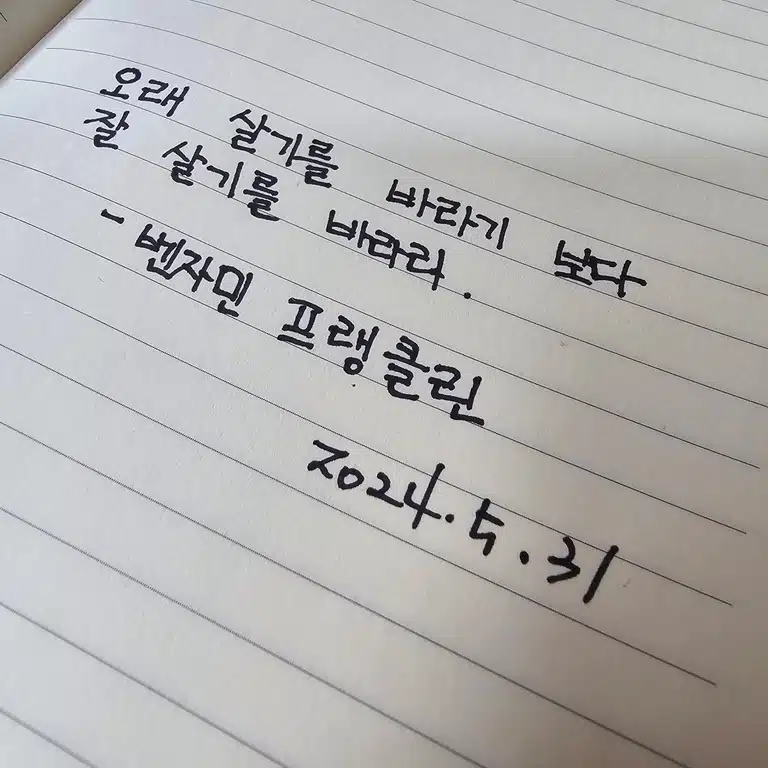 오래 살기를 바라기 보다
잘 살기를 바라라.
- 벤자민 프랭클린
2024. 5. 31